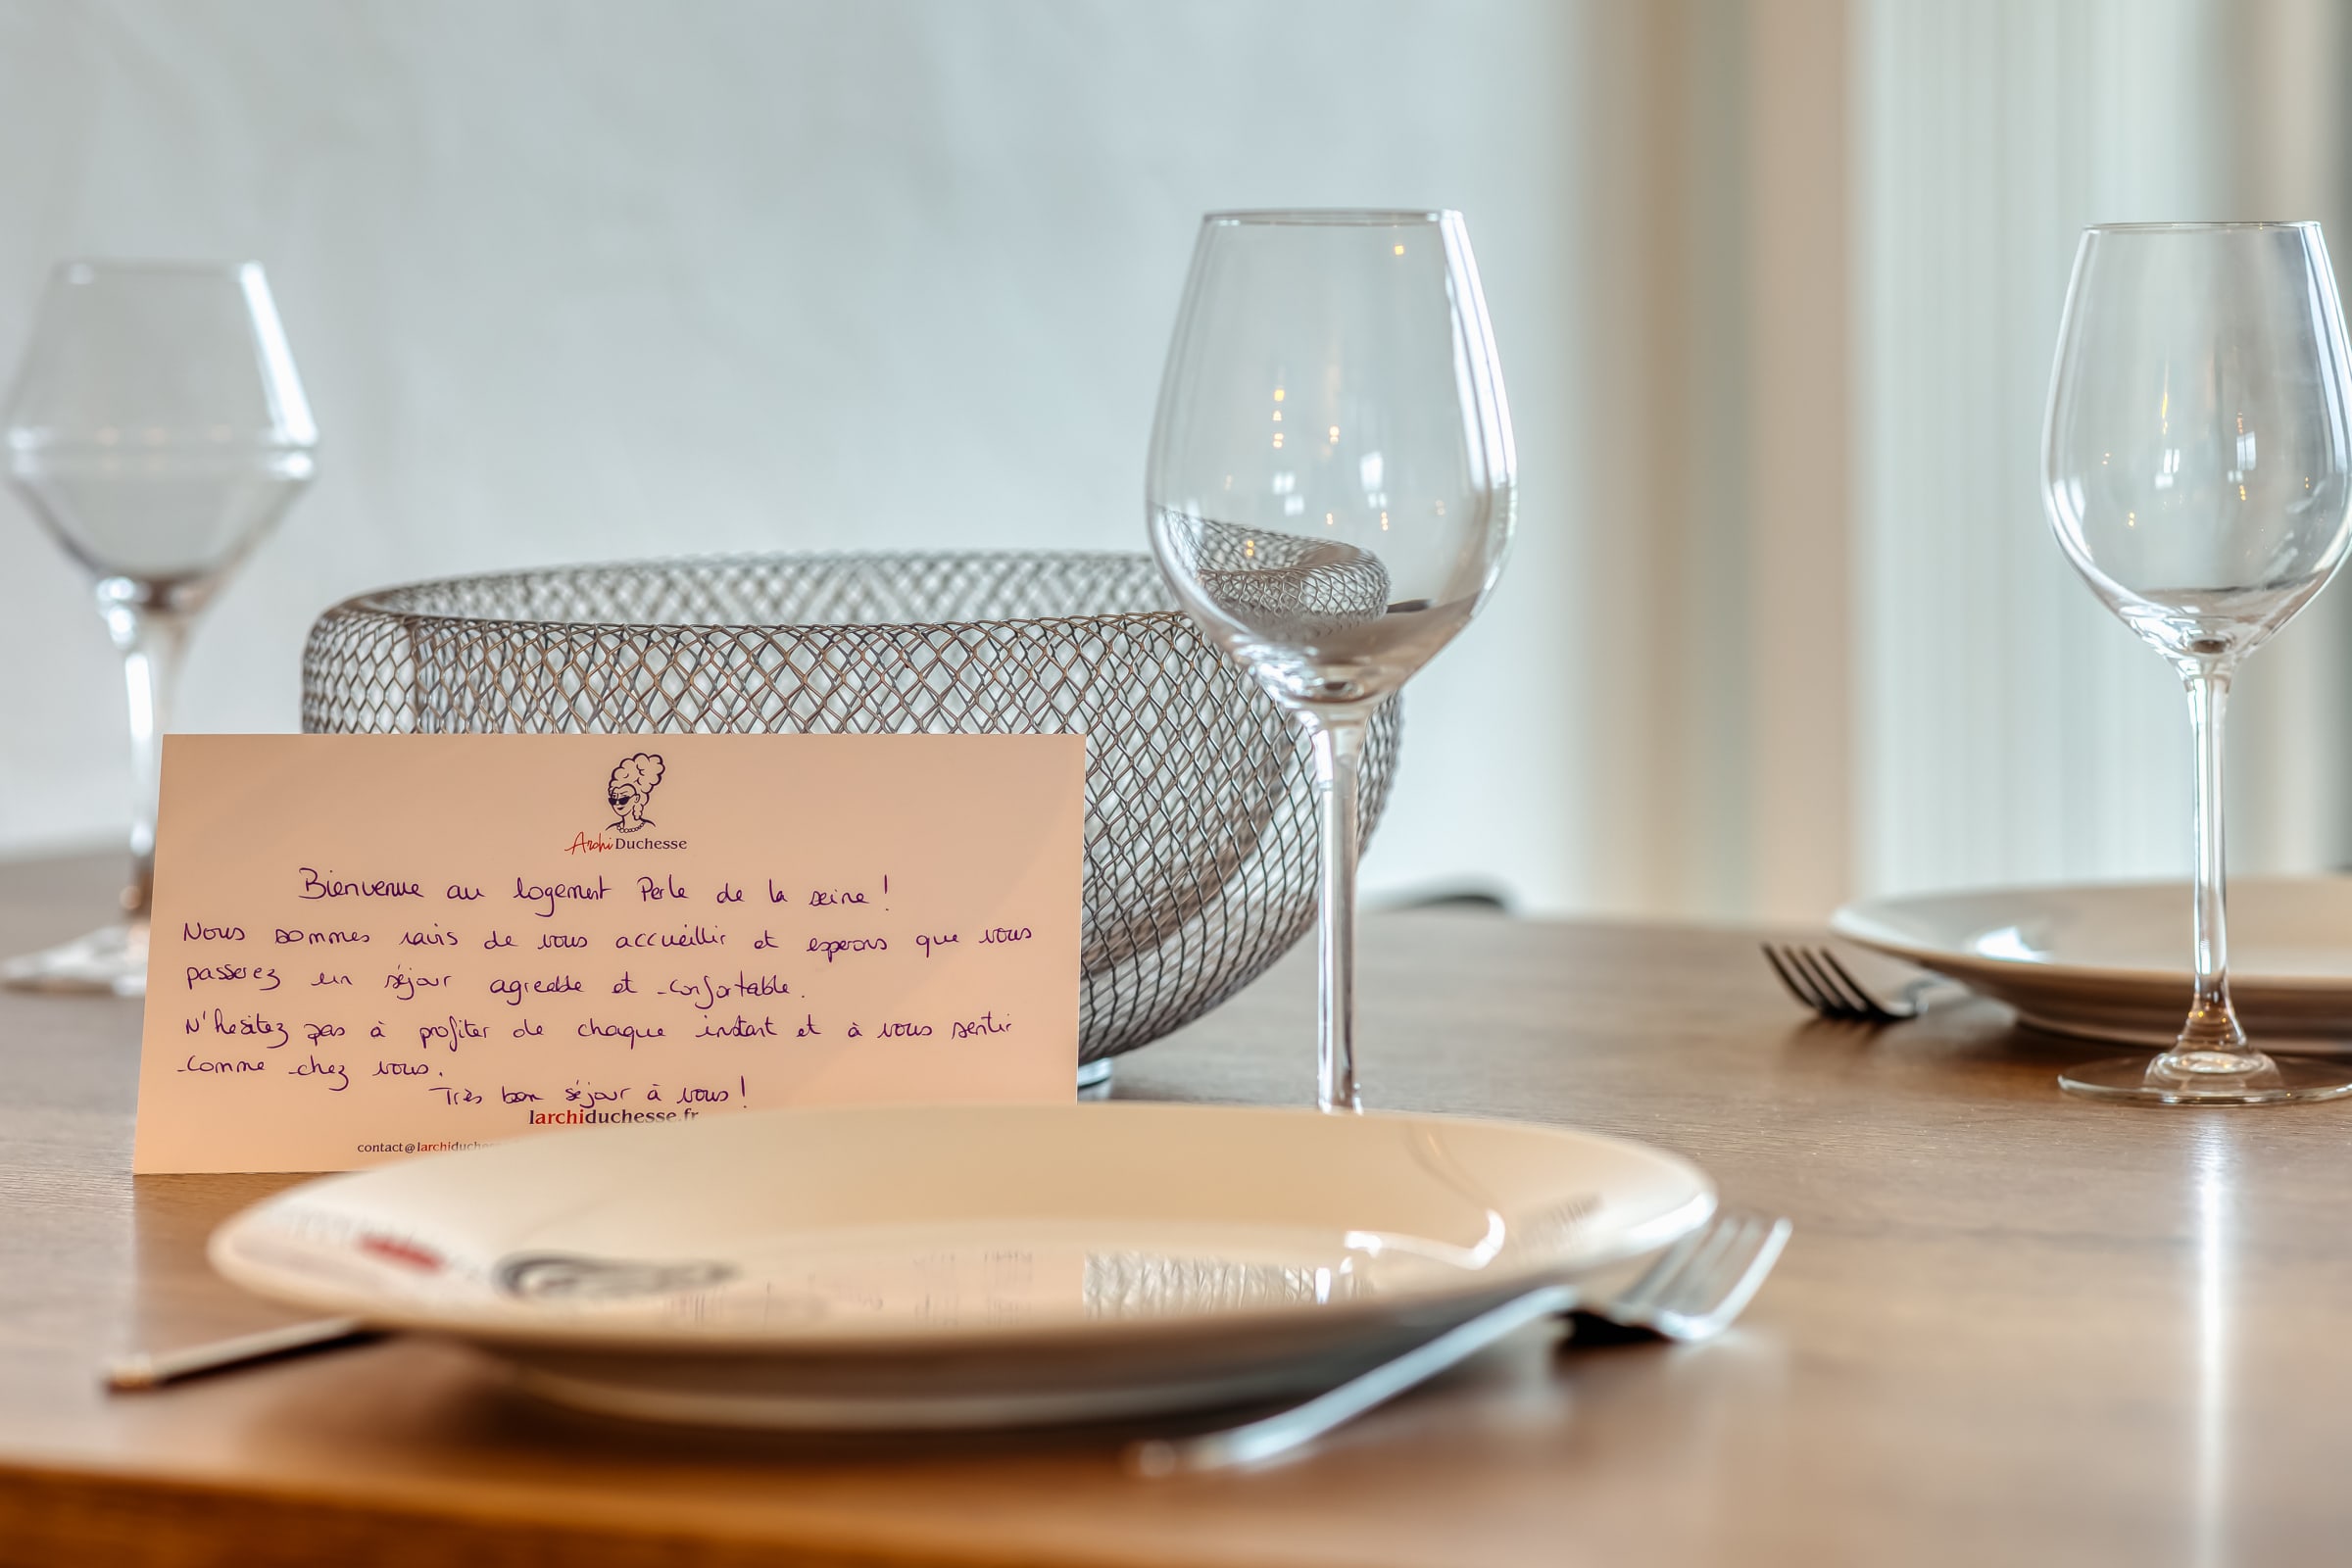 ArchiDuchesse
Bienvenue au logement Perle de la seine !
Nous sommes ravis de vous accueillir et esperons que vous
passerez un séjour agreable et confortable.
N'hesitez pas à profiter de chaque instant et à vous sentir
comme chez vous.
Très bon séjour à vous !
larchiduchesse.fr
contact@larchiduche